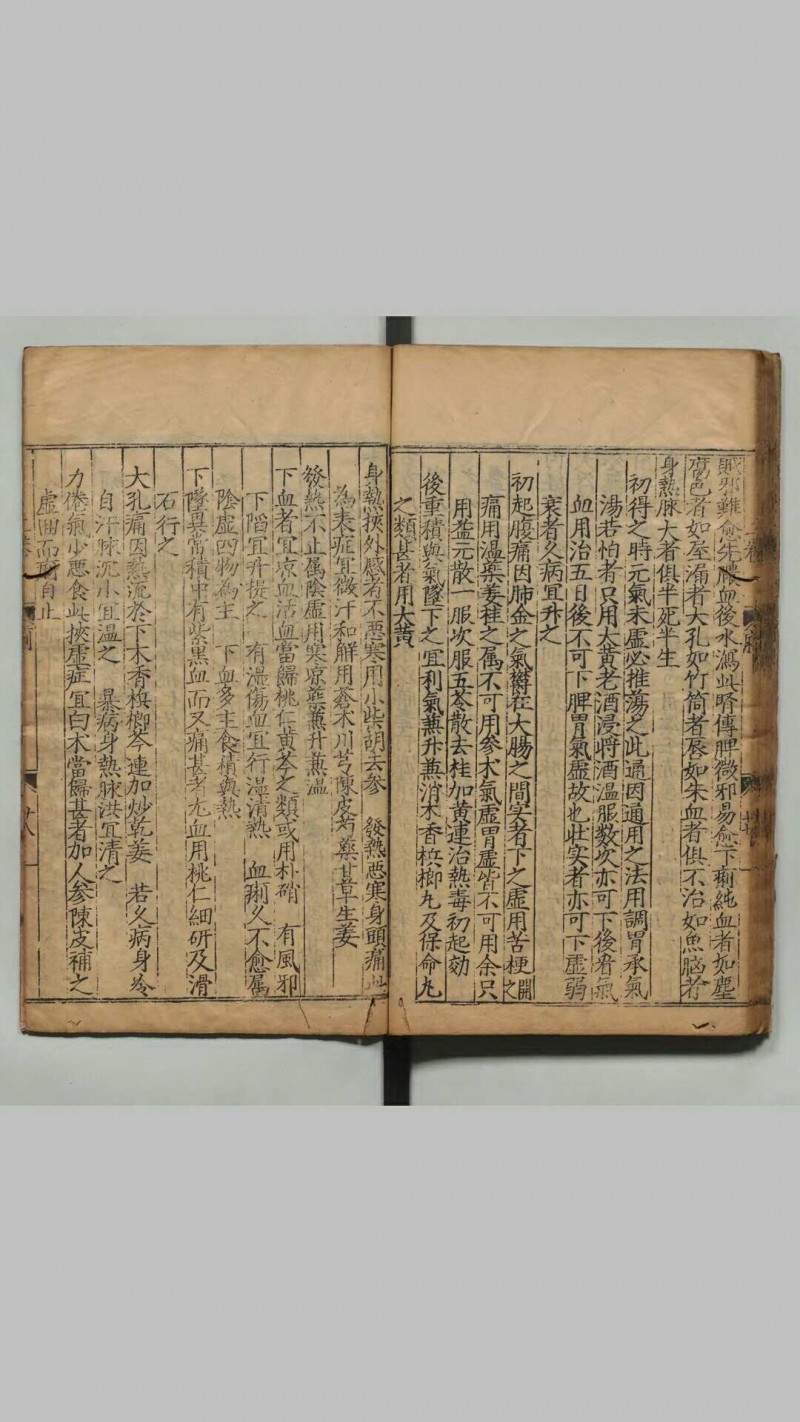 賊邪難愈先膿血後水瀉此腎傳脾微邪易愈下痢純血者如塵
腐色者如屋漏者大孔如竹筒者唇如朱血者俱不治如魚腦者
身熱脉大者俱半死半生
初得之時元氣未虛必推蕩之此通因通用之法用調胃承氣
湯若怕者只用大黃老酒浸將酒温服数次亦可下後看氣
血用治五日後不可下脾胃氣虛故也壯实者亦可下虛弱
衰者久病宜升之
初起腹痛因肺金之氣欝在大腸之間实者下之虛用苦梗開之
痛用温藥姜桂之属不可用参术氣虛胃虛皆不可用余只
用益元散一服次服五苓散去桂加黃連治熱毒初起効
後重積與氣墜下之宜利氣兼升兼消木香梹榔丸及保命丸
之類甚者用大黃
身熱挾外感者不惡寒用小柴胡去参 發熱惡寒身頭痛此
為表症宜微汗和解用蒼术川芎陳皮芍藥甘草生姜
發熱不止属陰虛用寒凉藥兼升兼温
下血者宜凉血活血當歸桃仁黃芩之類或用朴硝 有風邪
下陷宜升提之 有湿傷血宜行湿清熱 血痢久不愈属
陰虛四物為主 下血多主食積與熱
下墜異常積中有紫黑血而又痛甚者尤血用桃仁細研及滑
石行之
大孔痛因熱流於下木香梹榔芩連加炒乾姜 若久病身冷
自汗脉沉小宜温之 暴病身熱脉洪宜清之
力倦氣少惡食此挾虛症宜白术當歸甚者加人参陳皮補之
虛回而痢自止